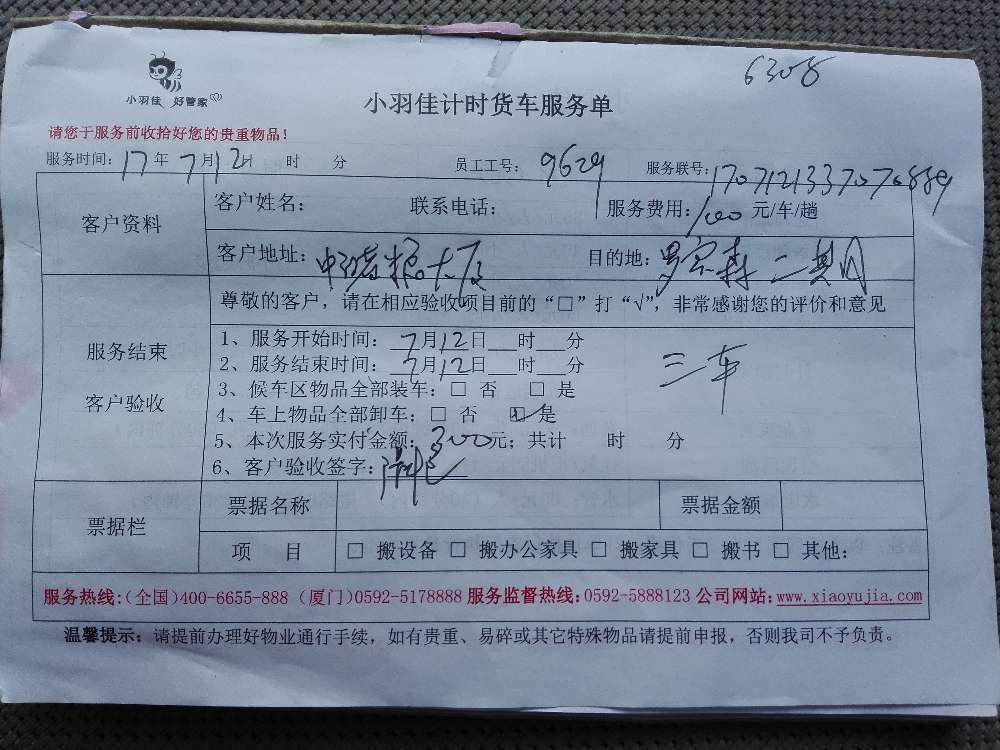 6308
小羽佳 好管家
小羽佳计时货车服务单
请您于服务前收拾好您的贵重物品！
服务时间：17年7月12日 时 分 员工工号：9629 服务联号：
客户资料
客户姓名： 联系电话： 服务费用：100元/车/趟
客户地址： 大厦 目的地： 二期
尊敬的客户，请在相应验收项目前的“□”打“√”，非常感谢您的评价和意见
服务结束
客户验收
1、服务开始时间：7月12日___时___分
2、服务结束时间：7月12日___时___分
三车
3、候车区物品全部装车：□ 否 □ 是
4、车上物品全部卸车：□ 否 ☑ 是
5、本次服务实付金额：300元；共计 时 分
6、客户验收签字：
票据栏
票据名称 票据金额
项 目 □ 搬设备 □ 搬办公家具 □ 搬家具 □ 搬书 □ 其他：
服务热线：（全国）400-6655-888（厦门）0592-5178888 服务监督热线：0592-5888123 公司网站：www.xiaoyujia.com
温馨提示：请提前办理好物业通行手续，如有贵重、易碎或其它特殊物品请提前申报，否则我司不予负责。